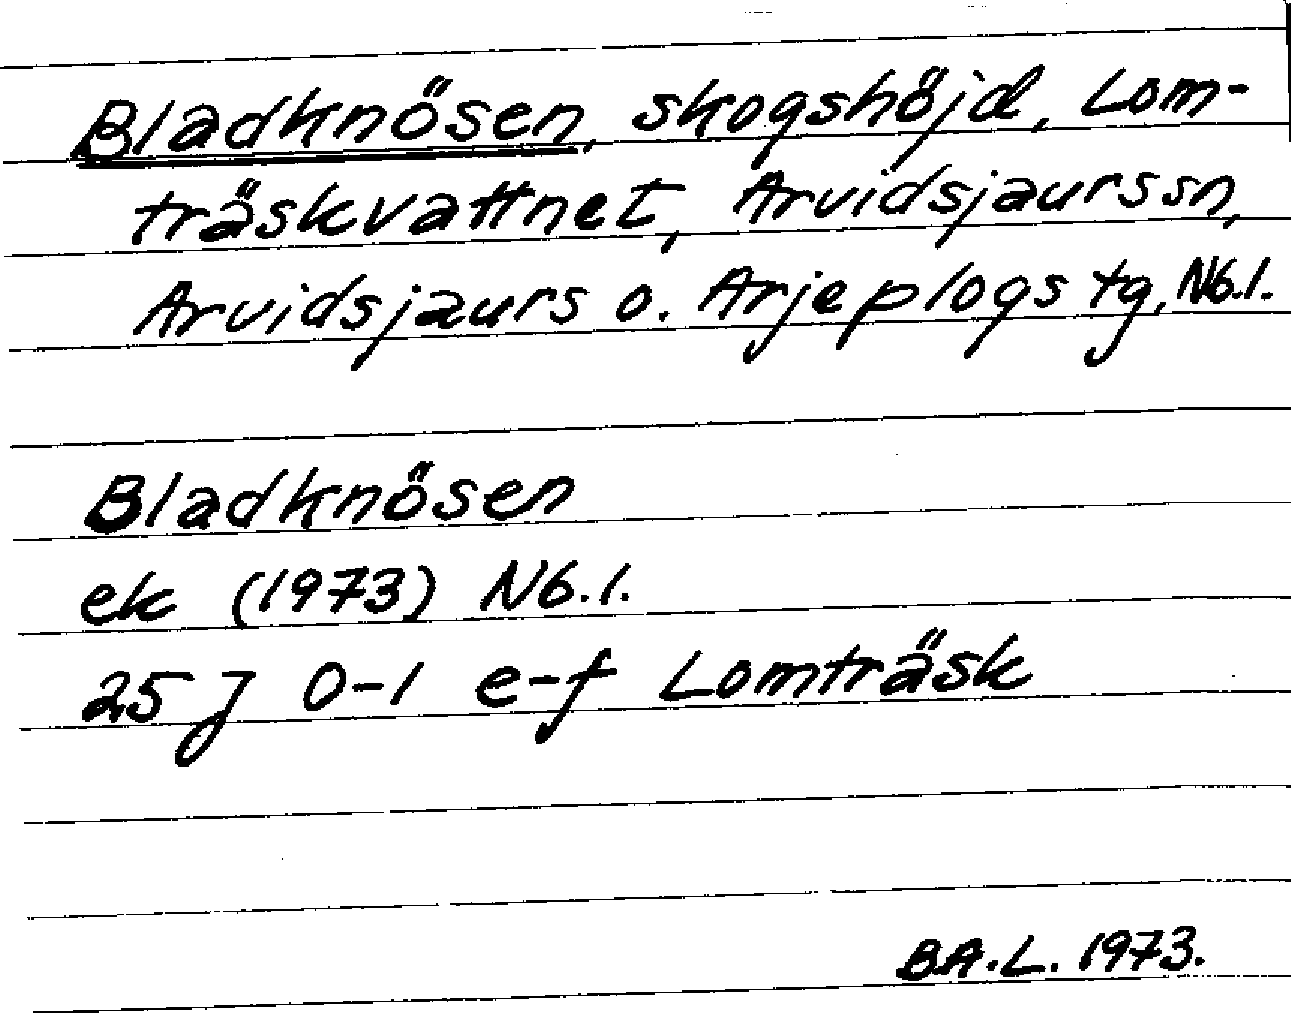 Bladknösen, skogshöjd, Lom-
träskvattnet, Arvidsjaurs sn,
Arvidsjaurs o. Arjeplogs tg, Nb.l.
Bladknösen
ek (1973) Nb.l.
25 J 0-1 e-f Lomträsk
BA.L. 1973.